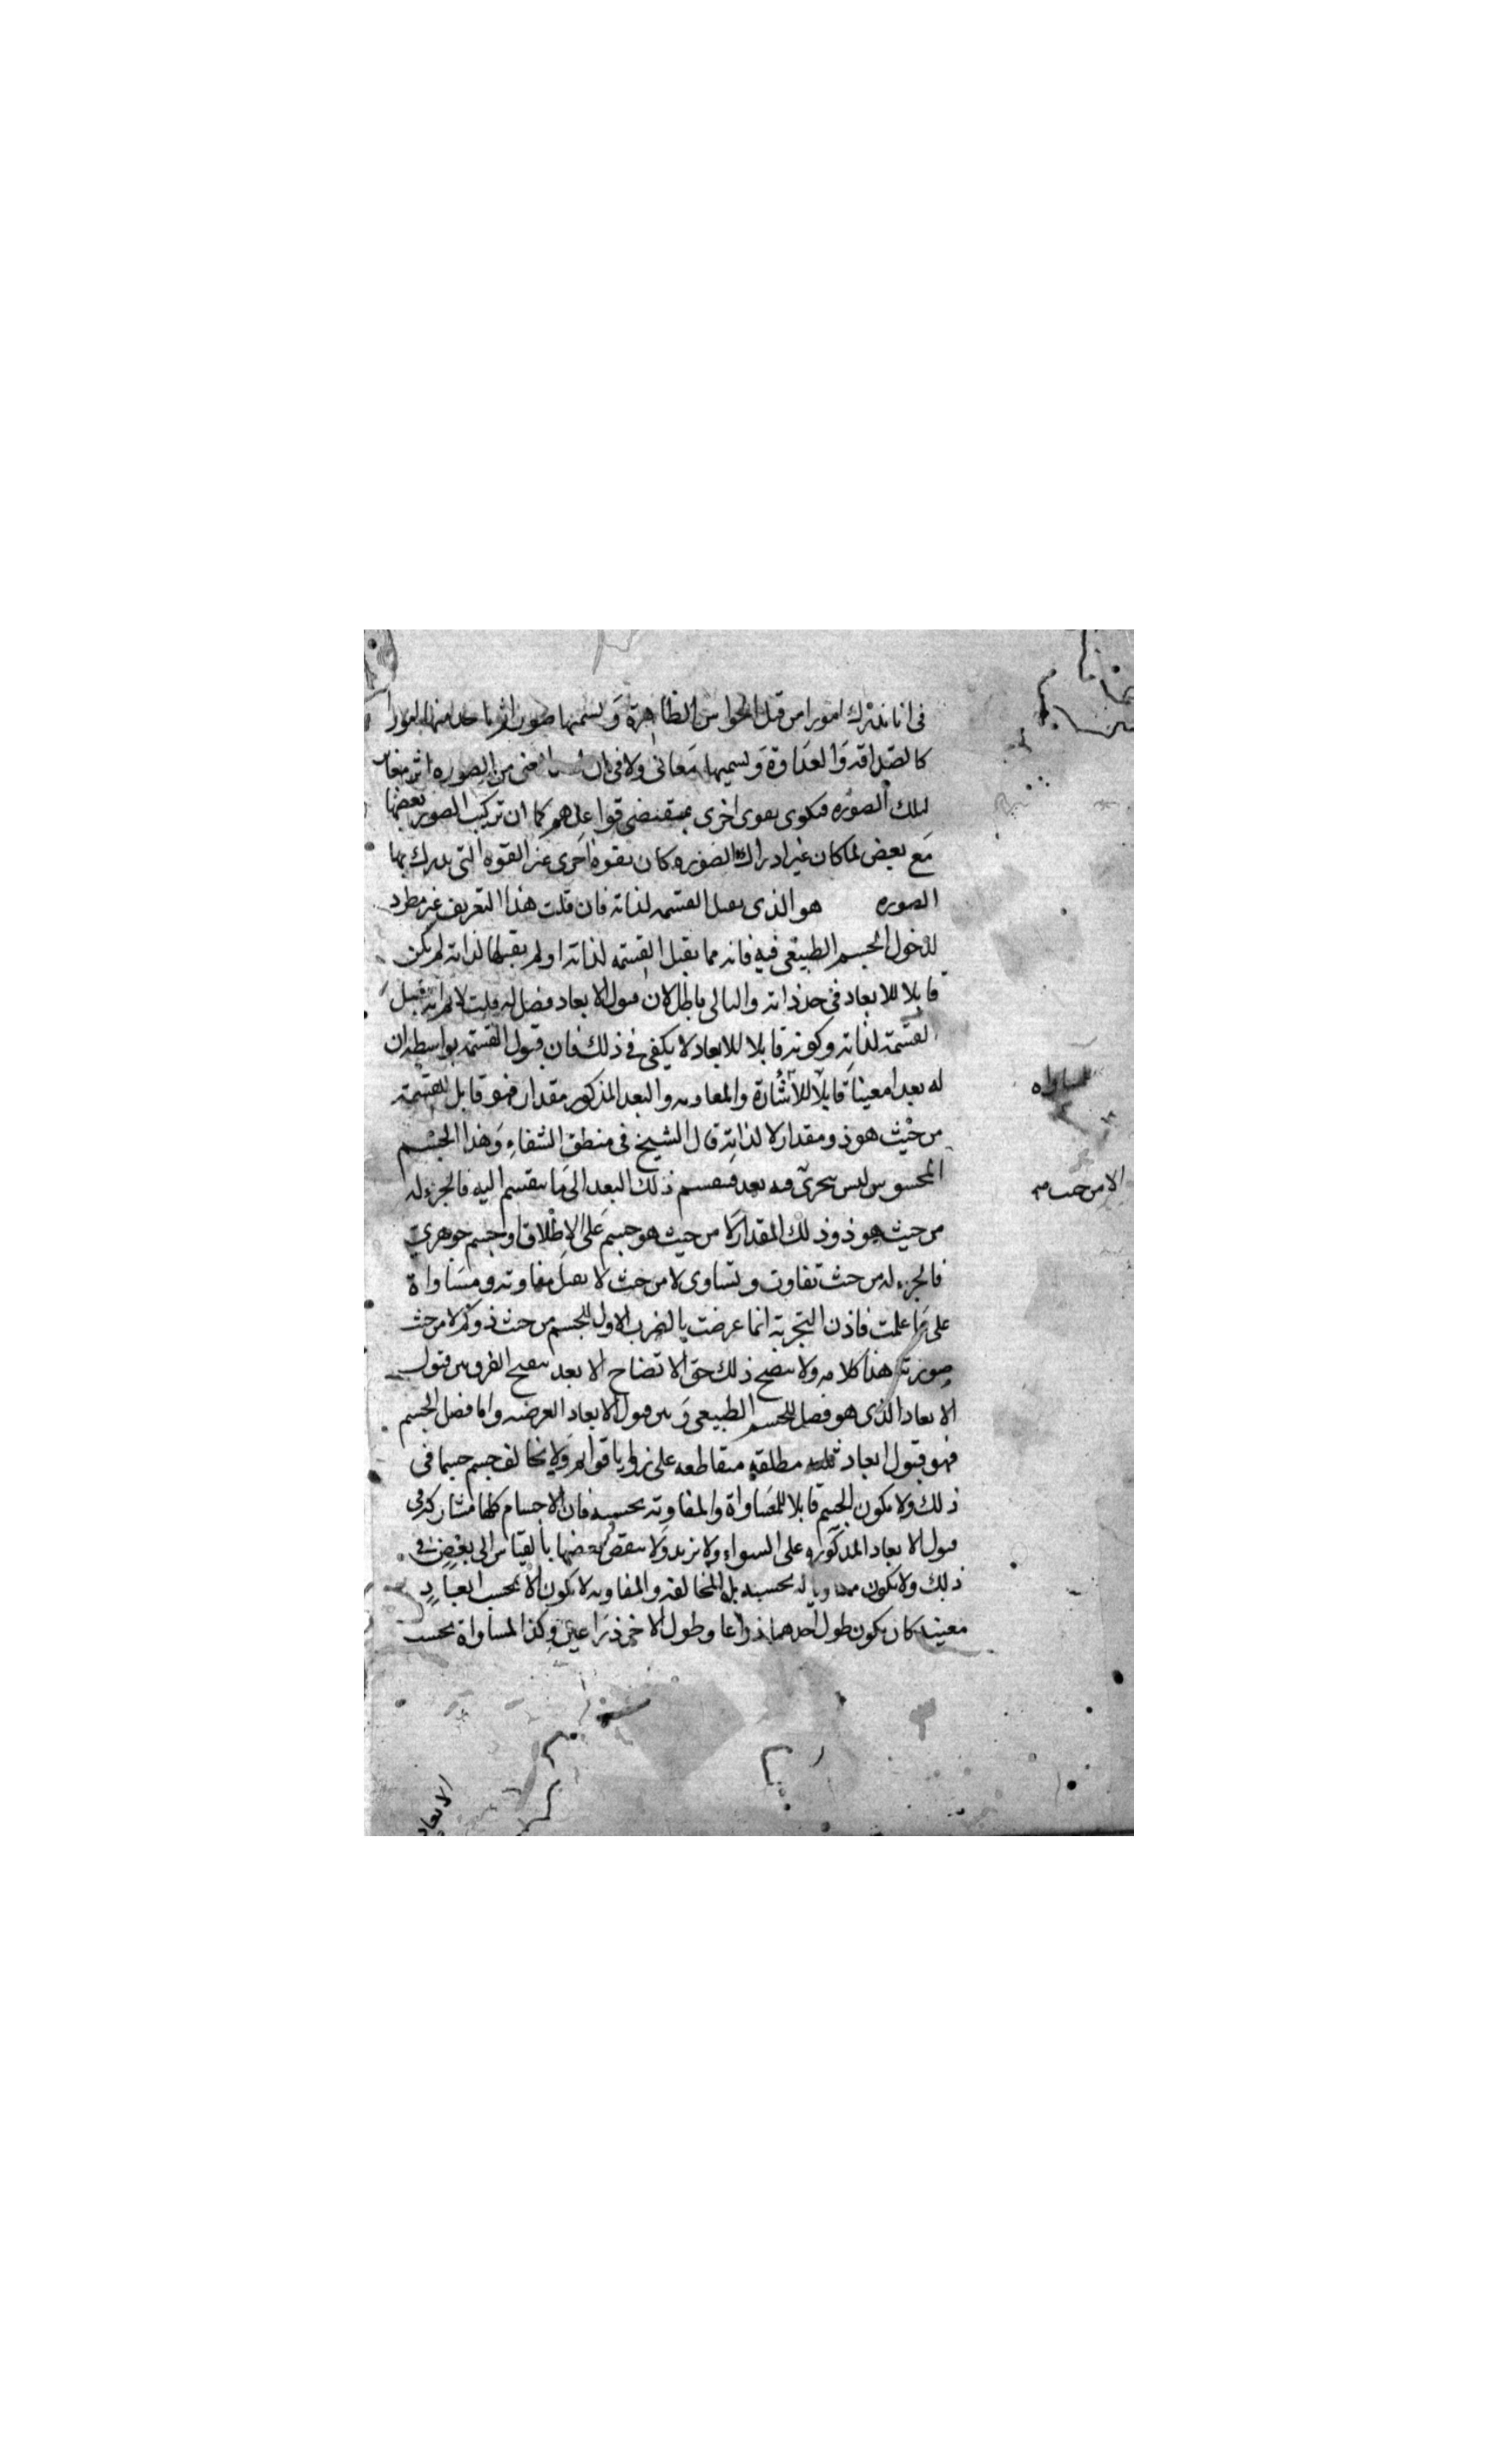 فى انا ندرك امورا من قبل الحواس الظاهرة ونسميها صورا امورا
كالصداقه والعداوة ونسميها معانى ولا فى ان المعنى من الصوره
لتلك الصوره فيكون بقوى اخرى بمقتضى قواعدهم كما ان تركيب الصور بعضها
مع بعض لما كان غير ادراك الصوره كان بقوة اخرى غير القوه التى يدرك بها
الصوره هو الذى يقبل القسمه لذاته فان قلت هذا التعريف غير مطرد
لدخول الجسم الطبيعى فيه فانه مما يقبل القسمه لذاته اولم يقبلها لذاته لم يكن
قابلا للابعاد فى حد ذاته والتالى باطل لان قبول الابعاد فصل له قلت لا نم انه يقبل
القسمة لذاته وكونه قابلا للابعاد لا يكفى فى ذلك فان قبول القسمه بواسطه ان
له بعدا معينا قابلا للاشارة والمفاوته والبعد المذكور مقدار فهو قابل للقسمة
من حيث هو ذو مقدار لا لذاته قال الشيخ فى منطق الشفاء وهذا الجسم
المحسوس ليس يتجزى فيه بعد فينقسم ذلك البعد الى ما ينقسم اليه فالجزء له
من حيث هو ذو ذلك المقدار لا من حيث هو جسم على الاطلاق او جسم جوهرى
فالجزء له من حيث تفاوت وتساوى لا من حيث لا يقبل مفاوته ومساواة
على ما علمت فاذن التجزية انما عرضت بالضرب الاول للجسم من حيث ذو كم لا من حيث
صورته هذا كلامه ولا يتضح ذلك حق الاتضاح الا بعد تنقيح الفرق بين قبول
الابعاد الذى هو فصل للجسم الطبيعى وبين قبول الابعاد العرضيه واما فصل الجسم
فهو قبول ابعاد ثلثه مطلقه متقاطعه على زوايا قوائم ولا يخالف جسم جسما فى
ذلك ولا يكون الجسم قابلا للمساواة والمفاوته بحسبه فان الاجسام كلها متشاركه فى
قبول الابعاد المذكوره على السواء ولا يزيد ولا ينقص بعضها بالقياس الى بعض فى
ذلك ولا يكون مساويا له بحسبه بل المخالفه والمفاوته لا يكون الا بحسب ابعاد
معينه كان يكون طول احدهما ذراعا وطول الاخر ذراعين وكذا المساواة بحسب
للمساواه
الا من حيث هى
الابعاد